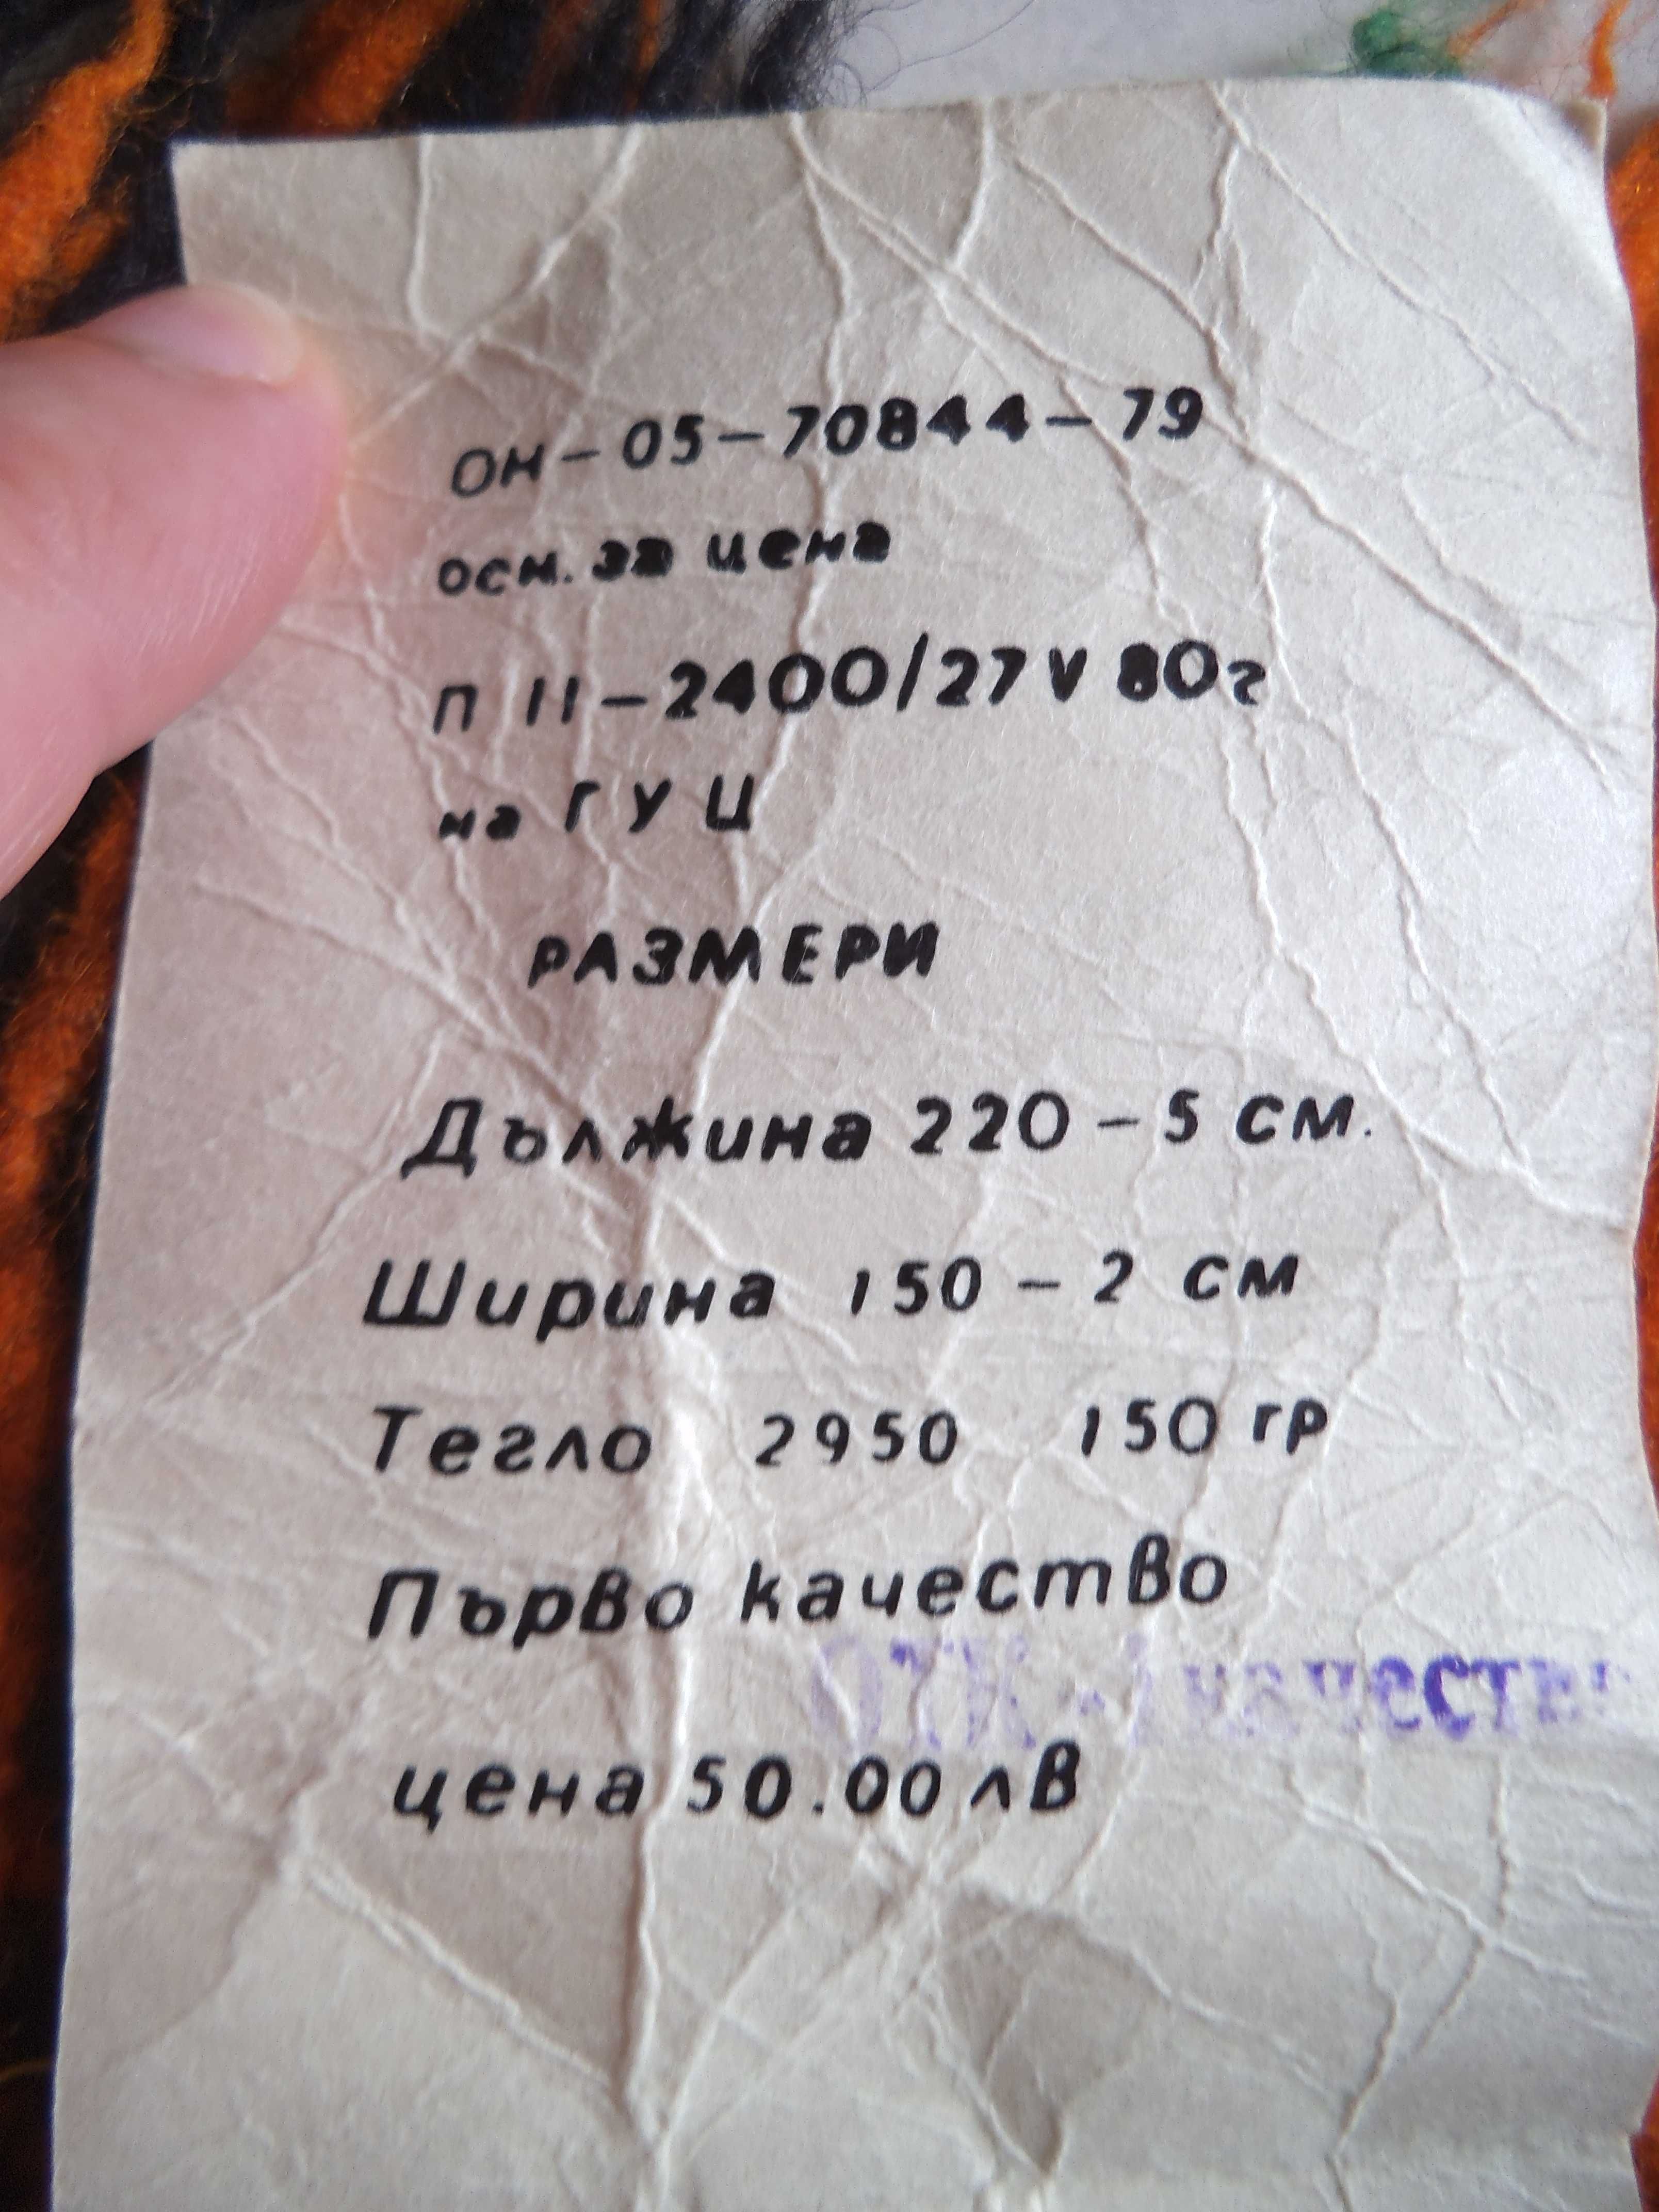 ОН-05-70844-79
осн. за цена
П 11-2400/27 V 80г
на ГУЦ
РАЗМЕРИ
Дължина 220 - 5 см.
Ширина 150 - 2 см
Тегло 2950 150 гр
Първо качество
ОТК - I качество
цена 50.00 лв